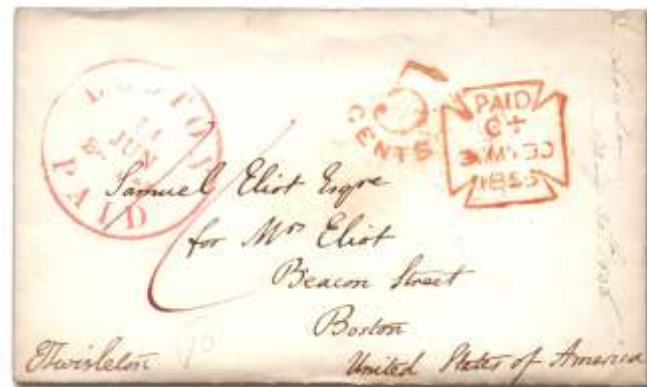 BOSTON
11
JUN
PAID
3
CENTS
PAID
Ct
MY 30
1855
Samuel Eliot Esqre
for Mrs Eliot
Beacon Street
Boston
United States of America
ETwisleton
10